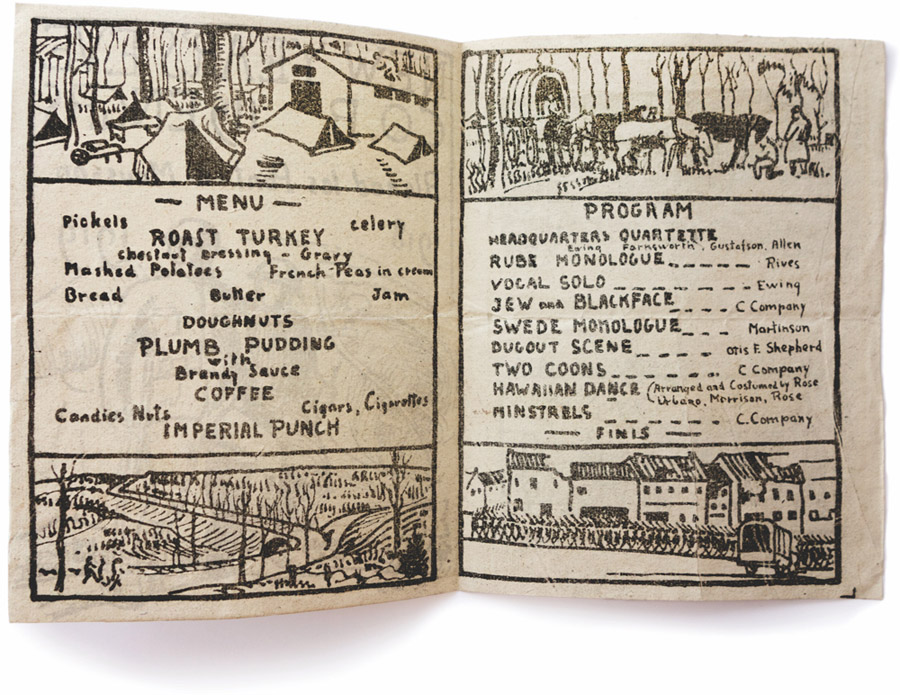 — MENU —
Pickels celery
ROAST TURKEY
chestnut Dressing - Gravy
Mashed Potatoes French Peas in cream
Bread Butter Jam
DOUGHNUTS
PLUMB PUDDING
with
Brandy Sauce
COFFEE
Candies Nuts Cigars, Cigarettes
IMPERIAL PUNCH
PROGRAM
HEADQUARTERS QUARTETTE
Ewing Farnsworth, Gustafson, Allen
RUBE MONOLOGUE Rives
VOCAL SOLO Ewing
JEW and BLACKFACE C Company
SWEDE MONOLOGUE Martinson
DUGOUT SCENE Otis F. Shepherd
TWO COONS C Company
HAWAIIAN DANCE (Arranged and Costumed by Rose
Urbano, Morrison, Rose
MINSTRELS C. Company
— FINIS —